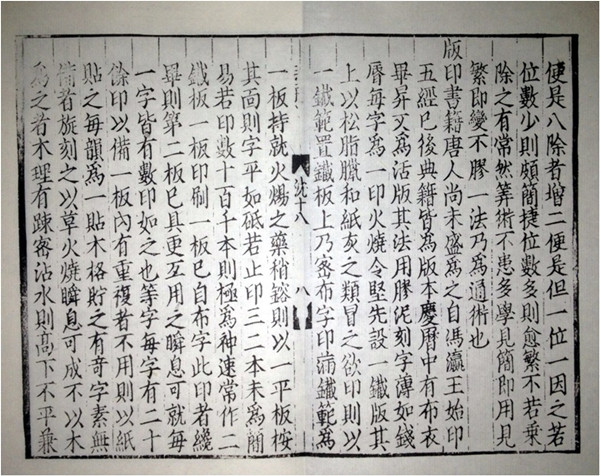 便是八除者增二便是但一位一因之若
位數少則頗簡捷位數多則愈繁不若乗
除之有常然筭術不患多學見簡即用見
繁即變不膠一法乃為通術也
版印書籍唐人尚未盛為之自馮瀛王始印
五經已後典籍皆為版本慶曆中有布衣
畢昇又為活版其法用膠泥刻字薄如錢
脣每字為一印火燒令堅先設一鐵版其
上以松脂臘和紙灰之類冒之欲印則以
一鐵範置鐵板上乃宻布字印滿鐵範為
沈十八
八
一板持就火煬之藥稍鎔則以一平板按
其面則字平如砥若止印三二本未為簡
易若印數十百千本則極為神速常作二
鐵板一板印刷一板已自布字此印者纔
畢則第二板已具更互用之瞬息可就每
一字皆有數印如之也等字每字有二十
餘印以備一板內有重複者不用則以紙
貼之每韻為一貼木格貯之有奇字素無
備者旋刻之以草火燒瞬息可成不以木
為之者木理有踈密沾水則高下不平兼